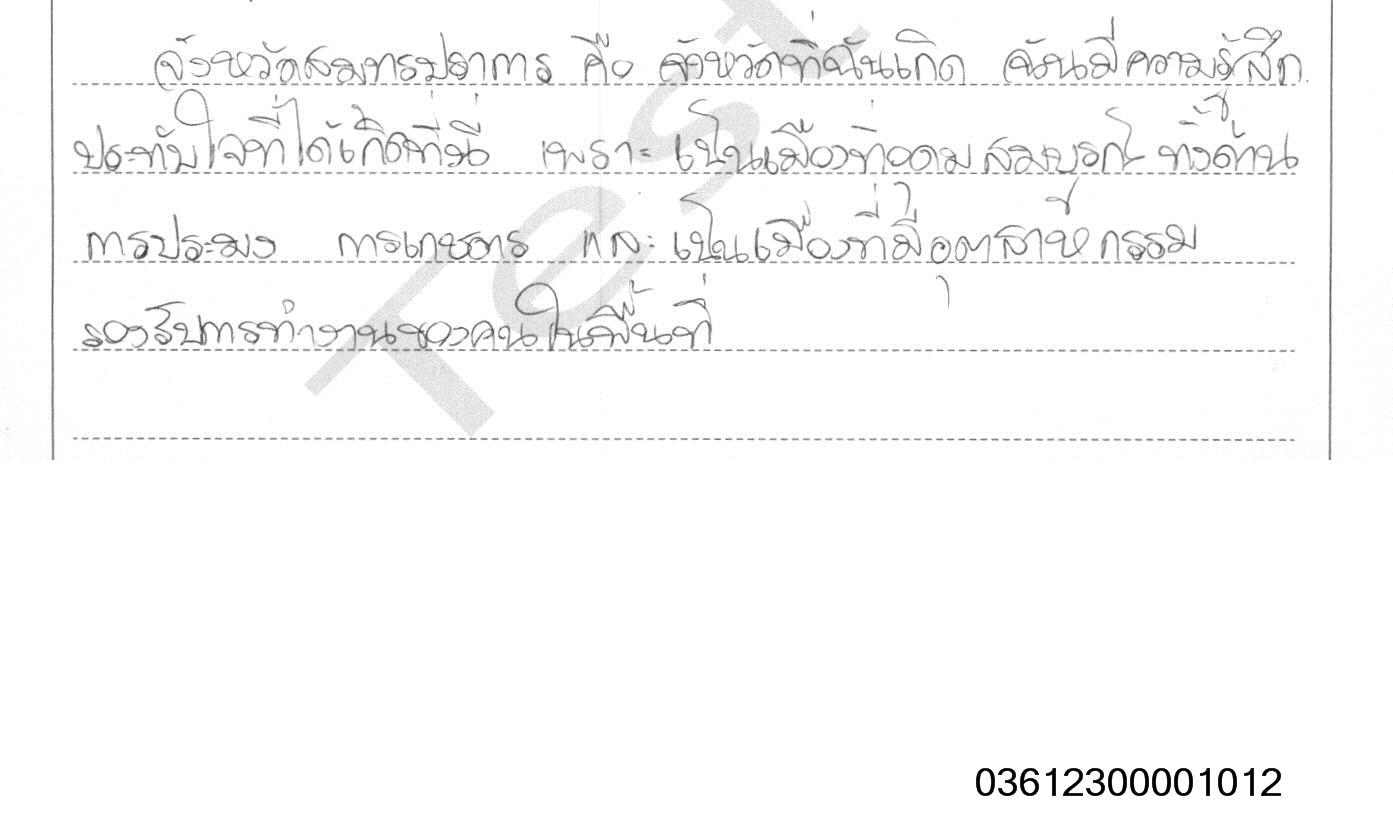 จังหวัดสมุทรปราการ คือ จังหวัดที่ฉันเกิด ฉันมีความรู้สึก
ประทับใจที่ได้เกิดที่นี่ เพราะ เป็นเมืองที่อุดมสมบูรณ์ ทั้งด้าน
การประมง การเกษตร และ เป็นเมืองที่มีอุตสาหกรรม
รองรับการทำงานของคนในพื้นที่
Test
03612300001012